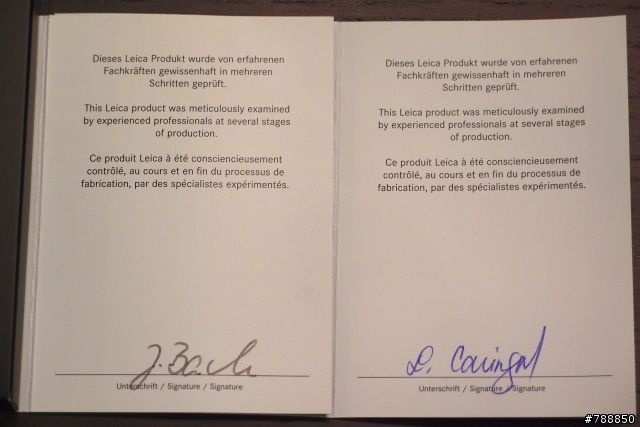 Dieses Leica Produkt wurde von erfahrenen
Fachkräften gewissenhaft in mehreren
Schritten geprüft.
This Leica product was meticulously examined
by experienced professionals at several stages
of production.
Ce produit Leica à été consciencieusement
contrôlé, au cours et en fin du processus de
fabrication, par des spécialistes expérimentés.
J. Bach
Unterschrift / Signature / Signature
Dieses Leica Produkt wurde von erfahrenen
Fachkräften gewissenhaft in mehreren
Schritten geprüft.
This Leica product was meticulously examined
by experienced professionals at several stages
of production.
Ce produit Leica à été consciencieusement
contrôlé, au cours et en fin du processus de
fabrication, par des spécialistes expérimentés.
Unterschrift / Signature / Signature
#788850